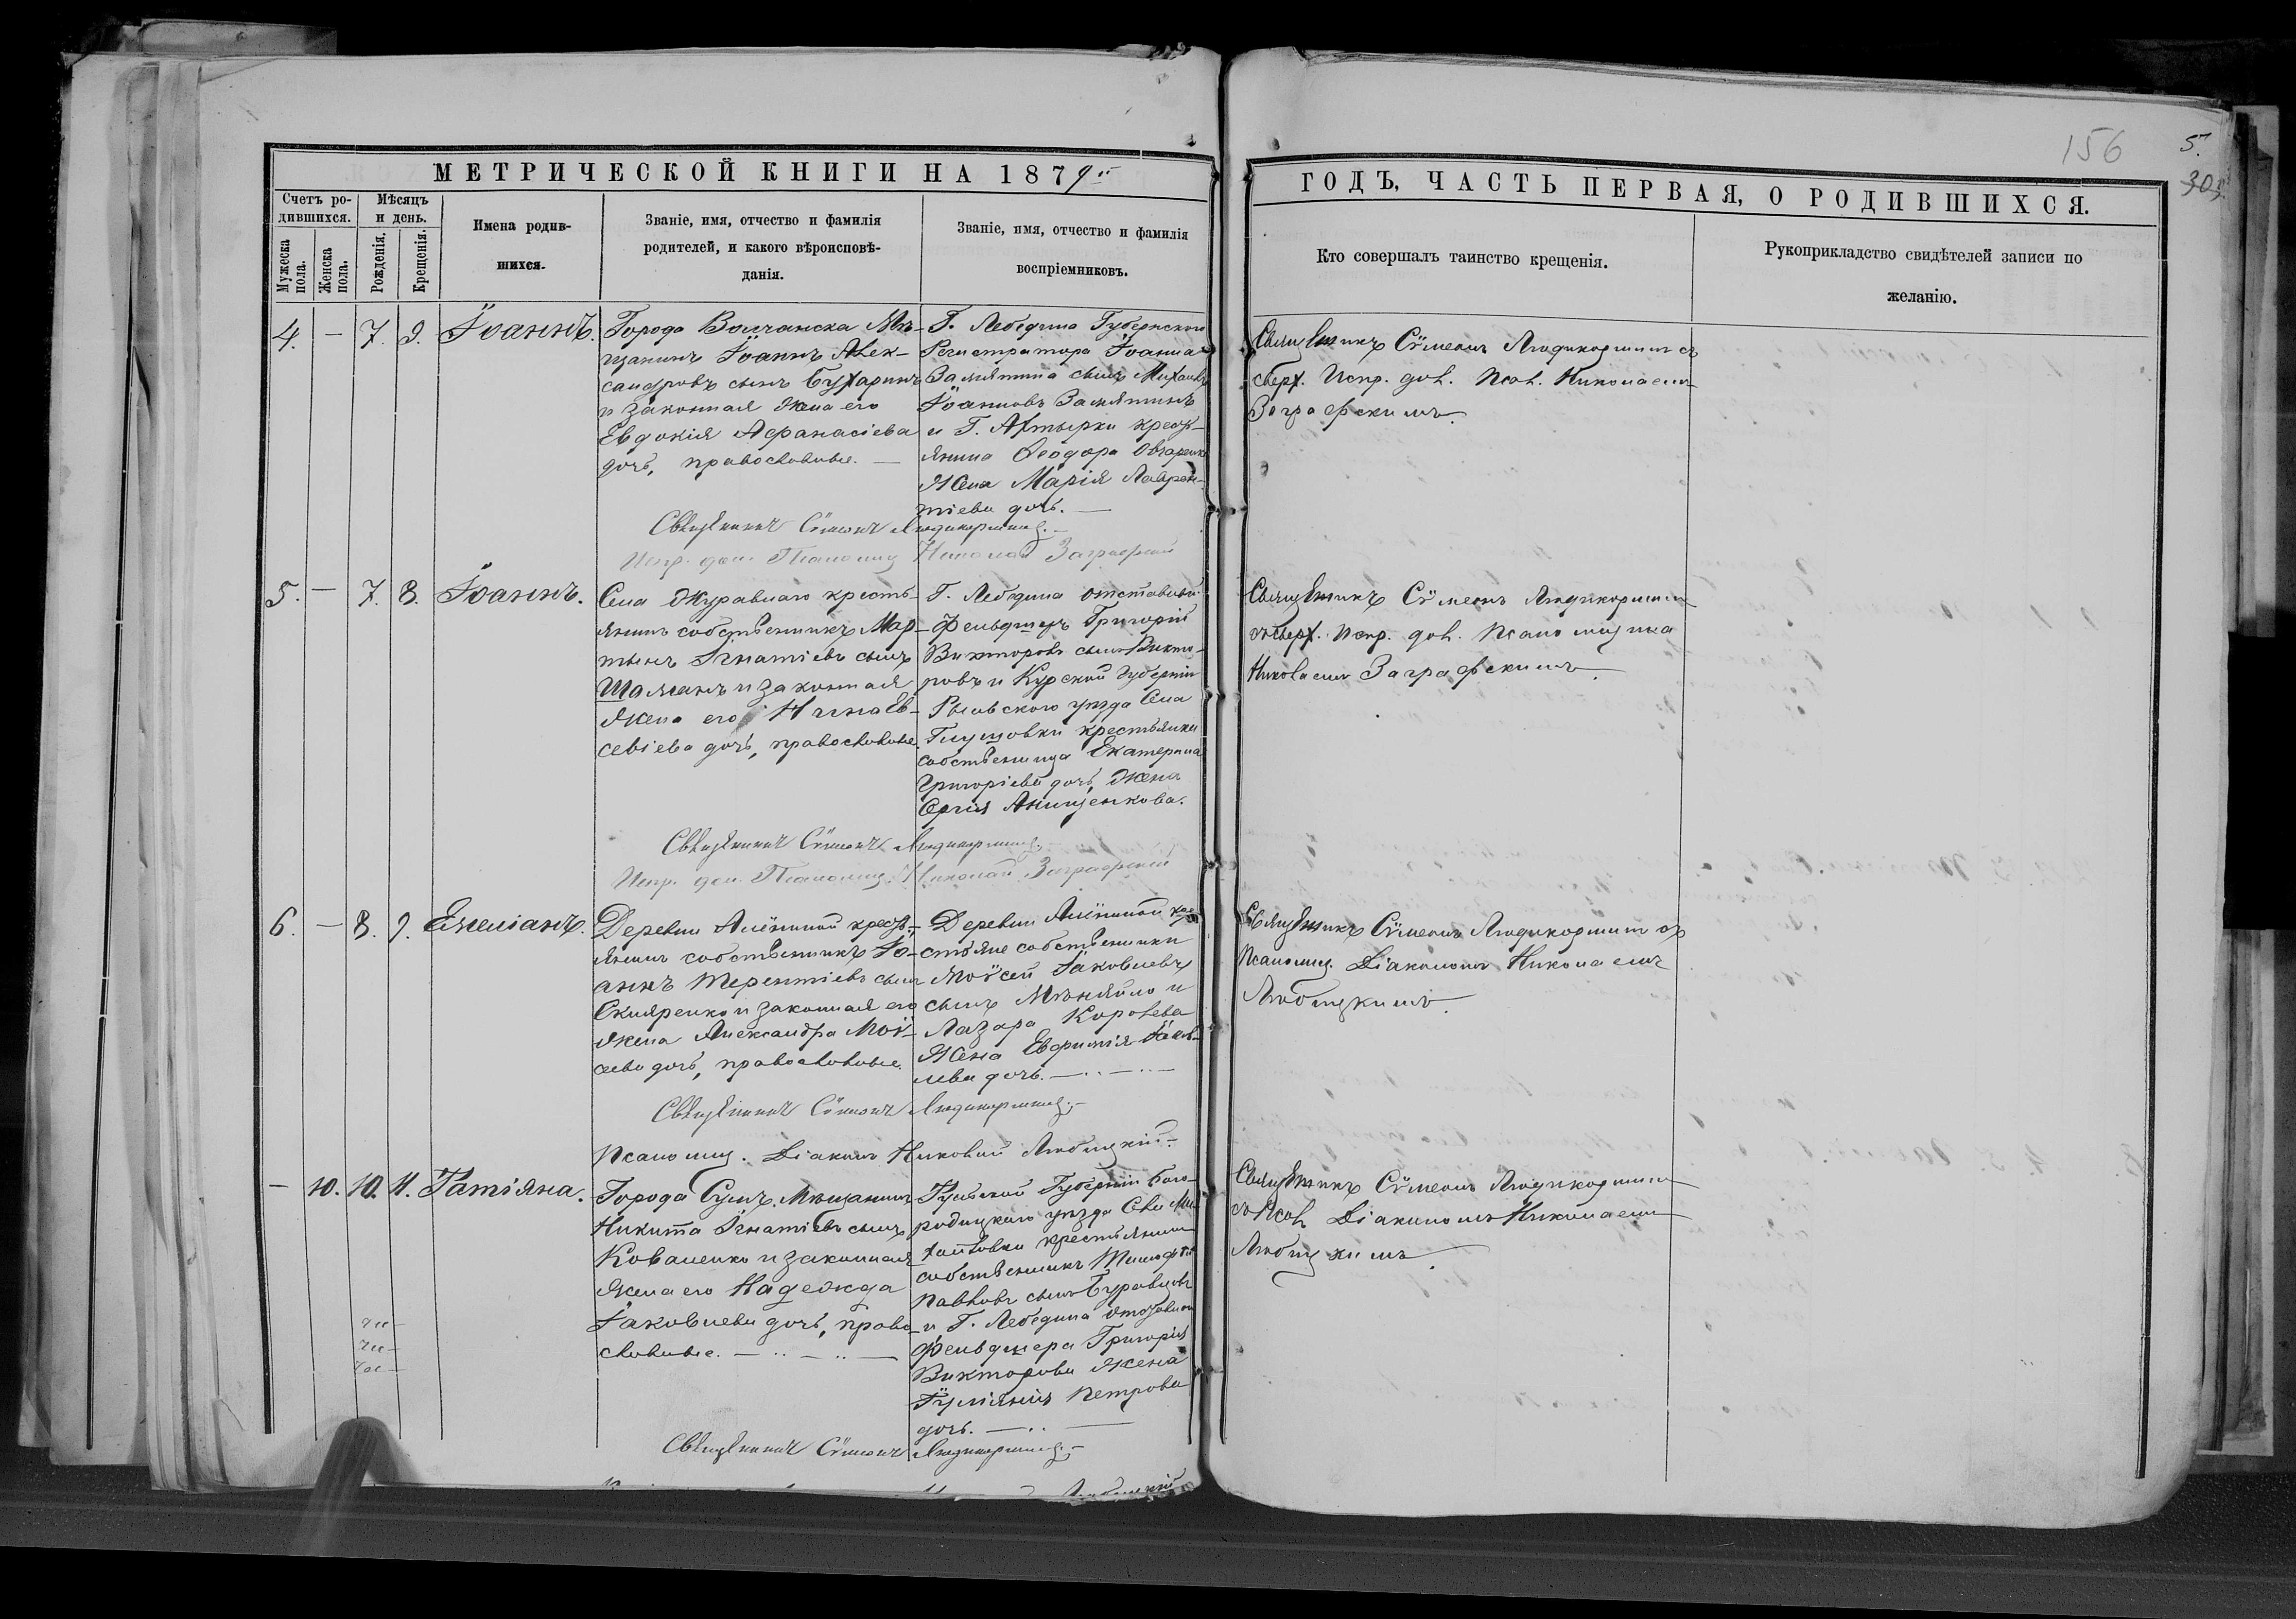 156
5.
303.
МЕТРИЧЕСКОЙ КНИГИ НА 1879й
ГОДЪ, ЧАСТЬ ПЕРВАЯ, О РОДИВШИХСЯ.
Счетъ ро-
дившихся.
Мужеска
пола.
Женска
пола.
Мѣсяцъ
и день.
Рожденія.
Крещенія.
Имена родив-
шихся.
Званіе, имя, отчество и фамилія
родителей, и какого вѣроисповѣ-
данія.
Званіе, имя, отчество и фамилія
воспріемниковъ.
Кто совершалъ таинство крещенія.
Рукоприкладство свидѣтелей записи по
желанію.
4. — 7. 9. Іоаннъ.
Города Волчанска Мѣ-
щанинъ Іоаннъ Алек-
сандровъ сынъ Бухаринъ
и законная жена его
Евдокія Аѳанасіева
дочь, православные. —
Г. Лебедина Губернскаго
Регистратора Іоанна
Замятина сынъ Михаилъ
Іоанновъ Замятинъ
и Г. Ахтырки крестъ-
янина Ѳеодора Овчаренка
жена Марія Лаврен-
тіева дочь. —
Священникъ Сѵмеонъ Людикорминъ съ
сверх. Испр. дол. Псал. Николаемъ
Заграфскимъ.
Священникъ Сѵмеонъ Людикорминъ. —
Испр. дол. Псаломщ. Николай Заграфскій
5. — 7. 8. Іоаннъ.
Села Журавнаго кресть-
янинъ собственникъ Мар-
тынъ Игнатіевъ сынъ
Шаманъ и законная
жена его Анна Ев-
севіева дочь, православные.
Г. Лебедина отставный
Фельдшеръ Григорій
Викторовъ сынъ Викто-
ровъ и Курской Губерніи
Рыльскаго уѣзда Села
Глушовки крестьянка
собственница Екатерина
Григоріева дочь, жена
Сергія Анищенкова.
Священникъ Сѵмеонъ Людикорминъ
съ сверх. Испр. дол. Псаломщика
Николаемъ Заграфскимъ.
Священникъ Сѵмеонъ Людикорминъ. —
Испр. дол. Псаломщ. Николай Заграфскій
6. — 8. 9. Емеліанъ.
Деревни Алёшиной кресть-
янинъ собственникъ Іо-
аннъ Терентіевъ сынъ
Скляренко и законная его
жена Александра Мой-
сеева дочь, православные.
Деревни Алёшиной кре-
стьяне собственники
Мойсей Іаковлевъ
сынъ Мѣняйло и
Лазара Королева
жена Евфимія Іаков-
лева дочь. —
Священникъ Сѵмеонъ Людикорминъ съ
Псаломщ. Діакономъ Николаемъ
Любицкимъ.
Священникъ Сѵмеонъ Людикорминъ. —
Псаломщ. Діаконъ Николай Любицкій. —
— 10. 10. 11. Татіяна.
Города Сумъ Мѣщанинъ
Никита Игнатіевъ сынъ
Коваленко и законная
жена его Надежда
Іаковлева дочь, право-
славные. —
Тульской Губерніи Бого-
родицкаго уѣзда Села Ми-
хайловки крестьянинъ
собственникъ Тимофей
Павловъ сынъ Буравцовъ
и Г. Лебедина Отставнаго
Фельдшера Григорія
Викторова жена
Іуліанія Петрова
дочь. —
Священникъ Сѵмеонъ Людикорминъ
съ Псал. Діакономъ Николаемъ
Любицкимъ.
Священникъ Сѵмеонъ Людикорминъ. —